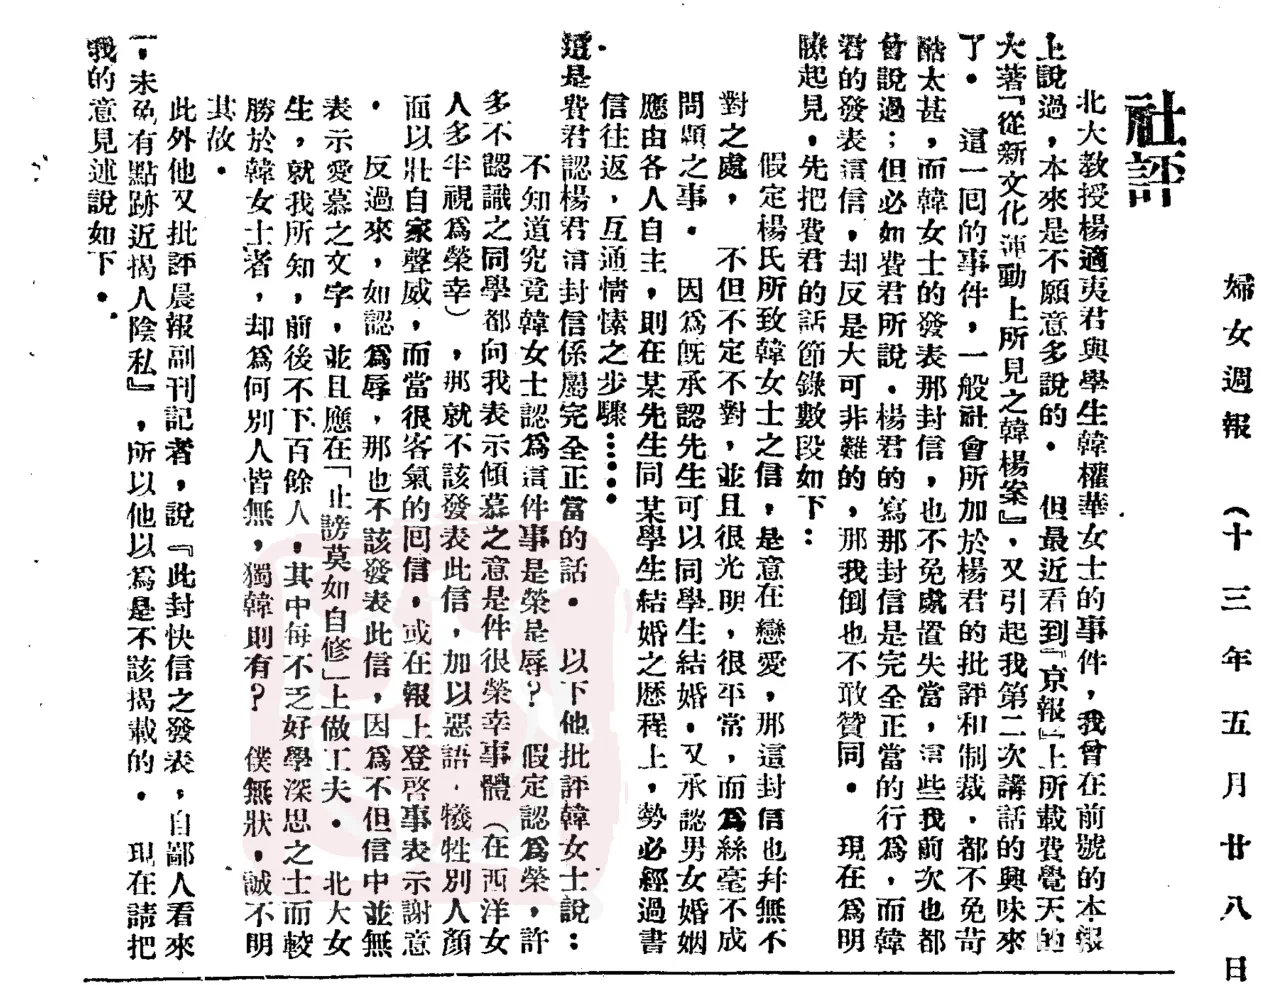 婦女週報 (十三年五月廿八日
社評
北大教授楊適夷君與學生韓權華女士的事件,我曾在前號的本報
上說過,本來是不願意多說的。 但最近看到『京報』上所載費覺天的
大著「從新文化運動上所見之韓楊案』,又引起我第二次講話的興味來
了。 這一回的事件,一般社會所加於楊君的批評和制裁,都不免苛
酷太甚,而韓女士的發表那封信,也不免處置失當,這些我前次也都
曾說過;但必如費君所說。楊君的寫那封信是完全正當的行為,而韓
君的發表這信,却反是大可非難的,那我倒也不敢贊同。 現在為明
瞭起見,先把費君的話節錄數段如下:
假定楊氏所致韓女士之信,是意在戀愛,那這封信也幷無不
對之處, 不但不定不對,並且很光明,很平常,而為絲毫不成
問題之事。 因為旣承認先生可以同學生結婚。又承認男女婚姻
應由各人自主,則在某先生同某學生結婚之歷程上,勢必經過書
信往返,互通情愫之步驟……
。
這是費君認楊君這封信係屬完全正當的話。 以下他批評韓女士說:
不知道究竟韓女士認為這件事是榮是辱? 假定認為榮,許
多不認識之同學都向我表示傾慕之意是件很榮幸事體 (在西洋女
人多半視為榮幸) ,那就不該發表此信,加以惡語,犧牲別人顏
面以壯自家聲威,而當很客氣的回信,或在報上登啓事表示謝意
。 反過來,如認為辱,那也不該發表此信,因為不但信中並無
表示愛慕之文字,並且應在「止謗莫如自修」上做工夫。 北大女
生,就我所知,前後不下百餘人,其中每不乏好學深思之士而較
勝於韓女士者,却為何別人皆無,獨韓則有? 僕無狀,誠不明
其故。
此外他又批評晨報副刊記者,說『此封快信之發表,自鄙人看來
,未免有點跡近揭人陰私』,所以他以為是不該揭載的。 現在請把
我的意見述說如下。